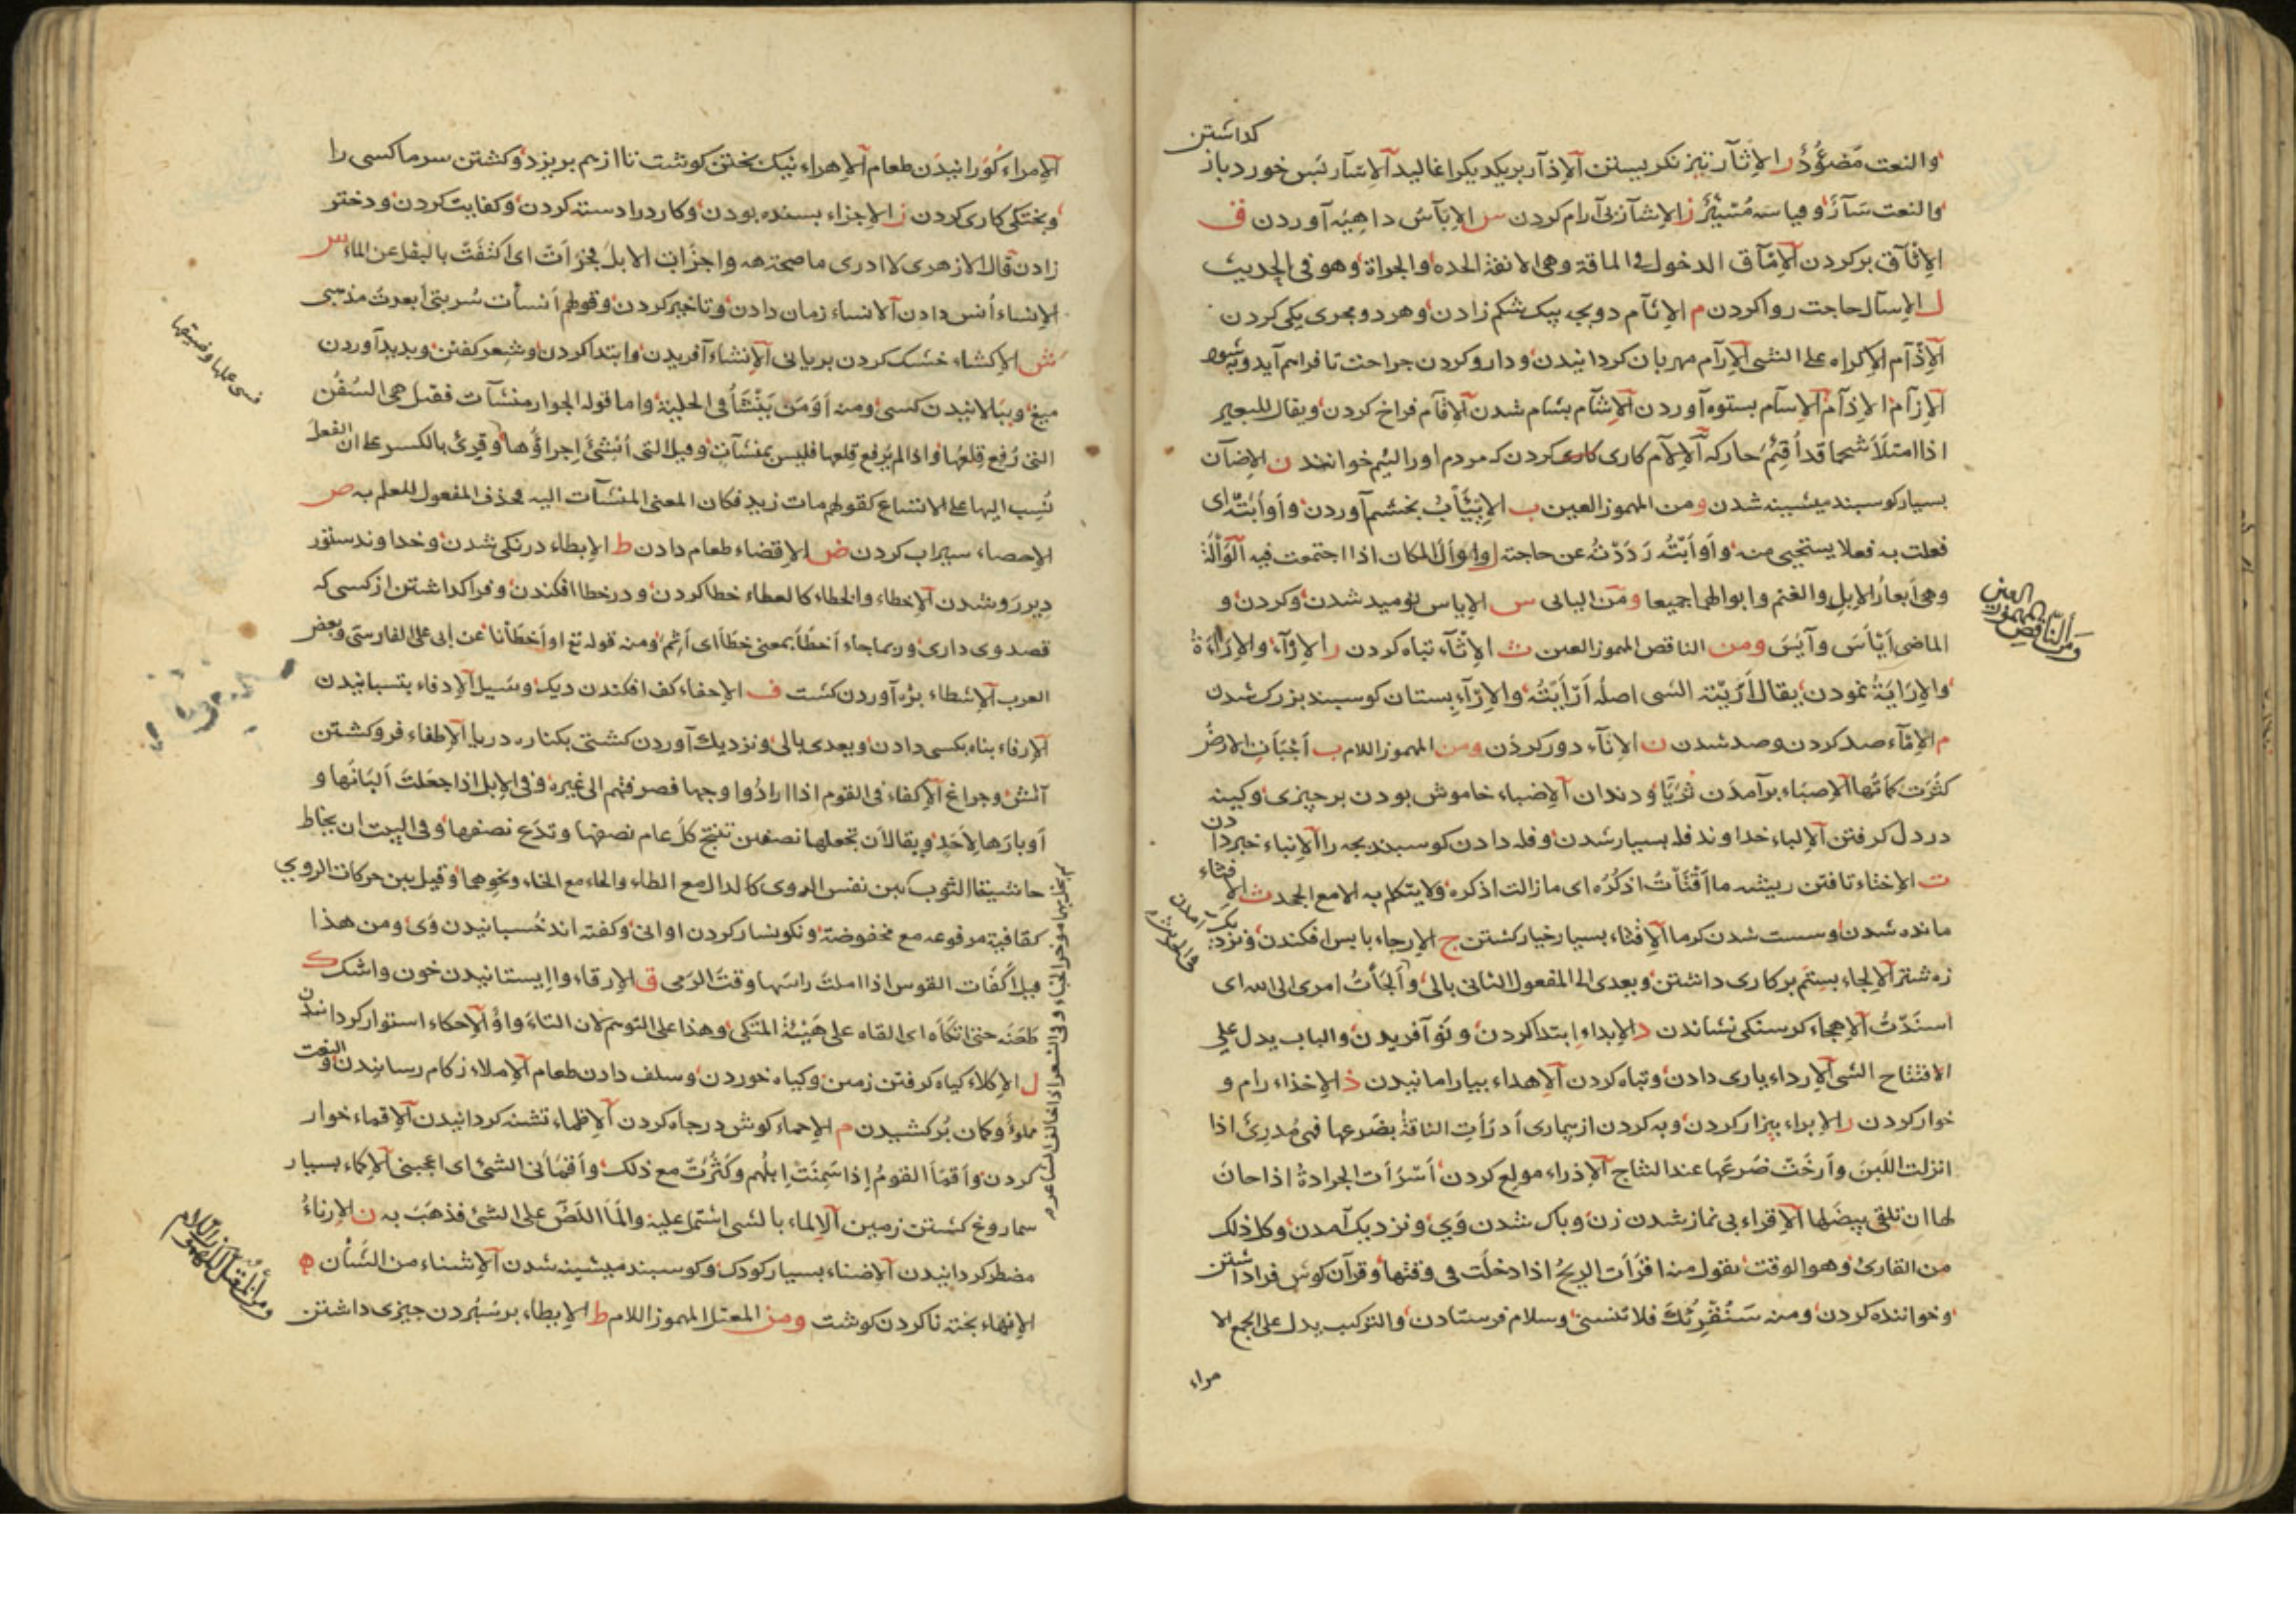 كداشتن
والنعت مَضوُّودٌ ر الإثآر تيز نكريستن الإذآر بر يكديكر اغاليد الإسآر پس خورد باز
والنعت سَآرٌ وقياسه مُسْئِرٌ ز الإشآز بى آرام كردن س الإبآس داهيه آوردن ق
الإتآق بر كردن الإمآق الدخول فى الماقة وهى الانفة الحده والجراة وهو فى الحديث
ل الإسآل حاجت روا كردن م الإتآم دو بچه بيك شكم زادن وهر دو بجرى يكى كردن
الإذآم الإكراه على الشى الإرآم مهربان كردانيدن ودارو كردن جراحت تا فراهم آيد وبه شود
الإزآم الإذآم الإسآم بستوه آوردن الإشآم بشام شدن الإفآم فراخ كردن ويقال للبعير
اذا امتلَأ شحما قد أُفئِمَ حاركه الإلآم كارى كردن كه مردم او را لئيم خوانند ن الإضآن
بسيار كوسبند ميشينه شدن ومن المهموز العين ب الإيئَابُ بخشم آوردن وأوأبْتُه اى
فعلت به فعلا يستحيى منه وأوأبْتُه رَدَدْتُه عن حاجته ل واوأل المكان اذا اجتمعت فيه الوَأْلَةُ
وهى أبعارُ الإبلِ والغنم وابوالها جميعا ومن اليائى س الإياس نوميد شدن وكردن و
الماضى أيْأسَ وآيَسَ ومن الناقص المهموز العين ث الإثآء تباه كردن ر الإرآء والإراءةُ
والإرَايَةُ نمودن يقال أرَيْته الشى اصله أرْأيْتُه والإرآء پستان كوسبند بزرك شدن
م الإمآء صد كردن وصد شدن ن الإنآء دور كردن ومن المهموز اللام ب أجْبَأتِ الارضُ
كثُرَت كمأتُها الإصبَاء برآمدن ثريّا ودندان الإضباء خاموش بودن بر چيزى وكينه
در دل كرفتن الإلباء خداوند فله بسيار شدن وفله دادن كوسبند بچه را الإنباء خبر دادن
ت الإختاء تافتن ريشه ما أفْتَأتُ اذكُرُه اى مازالت اذكره ولا يتكلم به الا مع الجحد ث الإفثاء
مانده شدن وسست شدن كرما الإقثاء بسيار خيار كشتن ج الإرجاء باپس افكندن ونزديك آمدن
زه شتر الإلجاء بستم بر كارى داشتن ويعدى الى المفعول الثانى بالى وألجَأتُ امرى الى الله اى
اسنَدْتُ الإهجاء كرسنكى نشاندن د الإبداء ابتدا كردن ونو آفريدن والباب يدل على
الافتتاح الشى الإرداء يارى دادن وتباه كردن الإهداء بيارامانيدن ذ الإخذاء رام و
خوار كردن ر الإبراء بيزار كردن وبه كردن از بيمارى أدرَأتِ الناقةُ بضَرعها فهى مُدرِئ اذا
انزلت اللَبنَ وأرخَتْ ضَرعَها عند النتاج الإذراء مولع كردن أسْرَأتِ الجرادةُ اذا حانَ
لها ان تلقى بيضَها الإقراء بى نماز شدن زن وپاك شدن وَى ونزديك آمدن وكل ذلك
من القارئ وهو الوقت يقول منه اقرَأت الريحُ اذا دخلَت فى وقتها وقرآن كوش فرا داشتن
وخواننده كردن ومنه سَنُقْرِئكَ فلا تنسى وسلام فرستادن والتركيب يدل على الجمع الا
مراء
ومن الناقص المهموز العين
الإمراء كُوَرانيدَن طعام الإهراء نيك پختن كوشت تا از هم بريزد وكشتن سرما كسى را
وبختكى كارى كردن ز الإجزاء بسنده بودن وكارد را دسته كردن وكفايت كردن ودختر
زادن قال الازهرى لا ادرى ما صحته وأجزأت الابلَ فجزَأتْ اى اكتفَتْ بالبقل عن الماء س
الإنساء أنس دادن الانساء زمان دادن وتاخير كردن وقولهم أنسأت سُربتى أبعدتُ مذهبى
ش الإكشاء خشك كردن بريانى الإنشاء آفريدن وابتدا كردن وشعر كفتن وپديد آوردن
ميغ وببالانيدن كسى ومنه أوَمَن يُنْشَأُ فى الحلية واما قوله الجوار منشآت فقيل هى السُفُن
التى رُفِع قِلعُها واذا لم يُرفع قِلعها فليس بمنشآت وقيل التى أُنشئَ إجراؤُها وقرئ بالكسر على ان الفعلَ
نُسِب اليها على الاتساع كقولهم مات زيد فكان المعنى المنشآت اليه فحذف المفعول للعلم به ص
الإحصاء سيراب كردن ض الإقضاء طعام دادن ط الإبطاء درنكى شدن وخداوند ستور
دِير رَو شدن الإخطاء والخطاء كالعطاء خطا كردن ودر خطا افكندن وفرا كذاشتن از كسى كه
قصد وى دارى وربما جاء أخطَأ بمعنى خطَأ اى أثِمَ ومنه قوله تع او أخطَأنا عن ابى على الفارسى وبعض
العرب الإشطاء برْه آوردن كشت ف الإجفاء كف افكندن ديك وسَيل الإدفاء بتسبانيدن
الإرفاء بناه بكسى دادن ويعدى بالى ونزديك آوردن كشتى بكناره دريا الإطفاء فرو كشتن
آتش وچراغ الإكفاء فى القوم اذا ارادُوا وجها فصرفتهم الى غيره وفى الإبل اذا جعَلتَ ألبَانَها و
أوبارَها لأحَدٍ ويقال أن تجعلها نصفين تنتج كلَّ عام نصفها وتدَع نصفها وفى البيت ان يخاط
حاشيتا الثوب بين نفس الروى كالدال مع الطاء والحاء مع الخاء ونحوهما وقيل بين حركات الروي
كقافية مرفوعه مع مخفوضة ونكونسار كردن اوانى وكفته اند خُسبانيدن وَى ومن هذا
قيل أكْفَأت القوس اذا املتَ راسَها وقتَ الرمى ق الإرقاء وا ايستانيدن خون واشك ك
طَعَنَه حتى اتكَأه اى القاه على هَيْئَة المتكى وهذا على التوهم لان التاءَ واوٌ الإحكاء استوار كردانيدن
ل الإكلاء كياه كرفتن زمين وكياه خوردن وسلف دادن طعام الإملاء زكام رسانيدن والنعت
مملوءٌ وكمان پُر كشيدن م الإحماء كوش در چاه كردن الإظماء تشنه كردانيدن الإقماء خوار
كردن وأقمَأ القومُ إذا سَمِنَتْ ابِلُهم وكَثُرَتْ مع ذلك وأقمأنى الشئ اى اعجبنى الإكماء بسيار
سماروغ كشتن زمين الإلماء بالشى اشتمل علية وألمَأ اللصّ على الشئ فذهَبَ به ن الإزناءُ
مضطر كردانيدن الإضناء بسيار كودك وكوسبند ميشينه شدن الإشناء من الشَنأن ه
الإنهاء پخته نا كردن كوشت ومن المعتل المهموز اللام ط الإيطاء برسُپُردن چيزى داشتن
ومن المعتل المهموز اللام